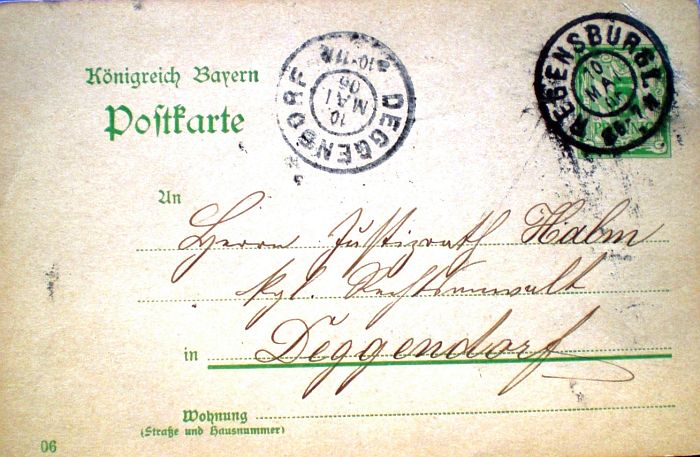 Königreich Bayern
Postkarte
DEGGENDORF
10. MAI 06
10-11
REGENSBURG I.
10 MAI 06
6-7
An
Herrn Justizrath Halm
kgl. Rechtsanwalt
in Deggendorf
Wohnung
(Straße und Hausnummer)
06